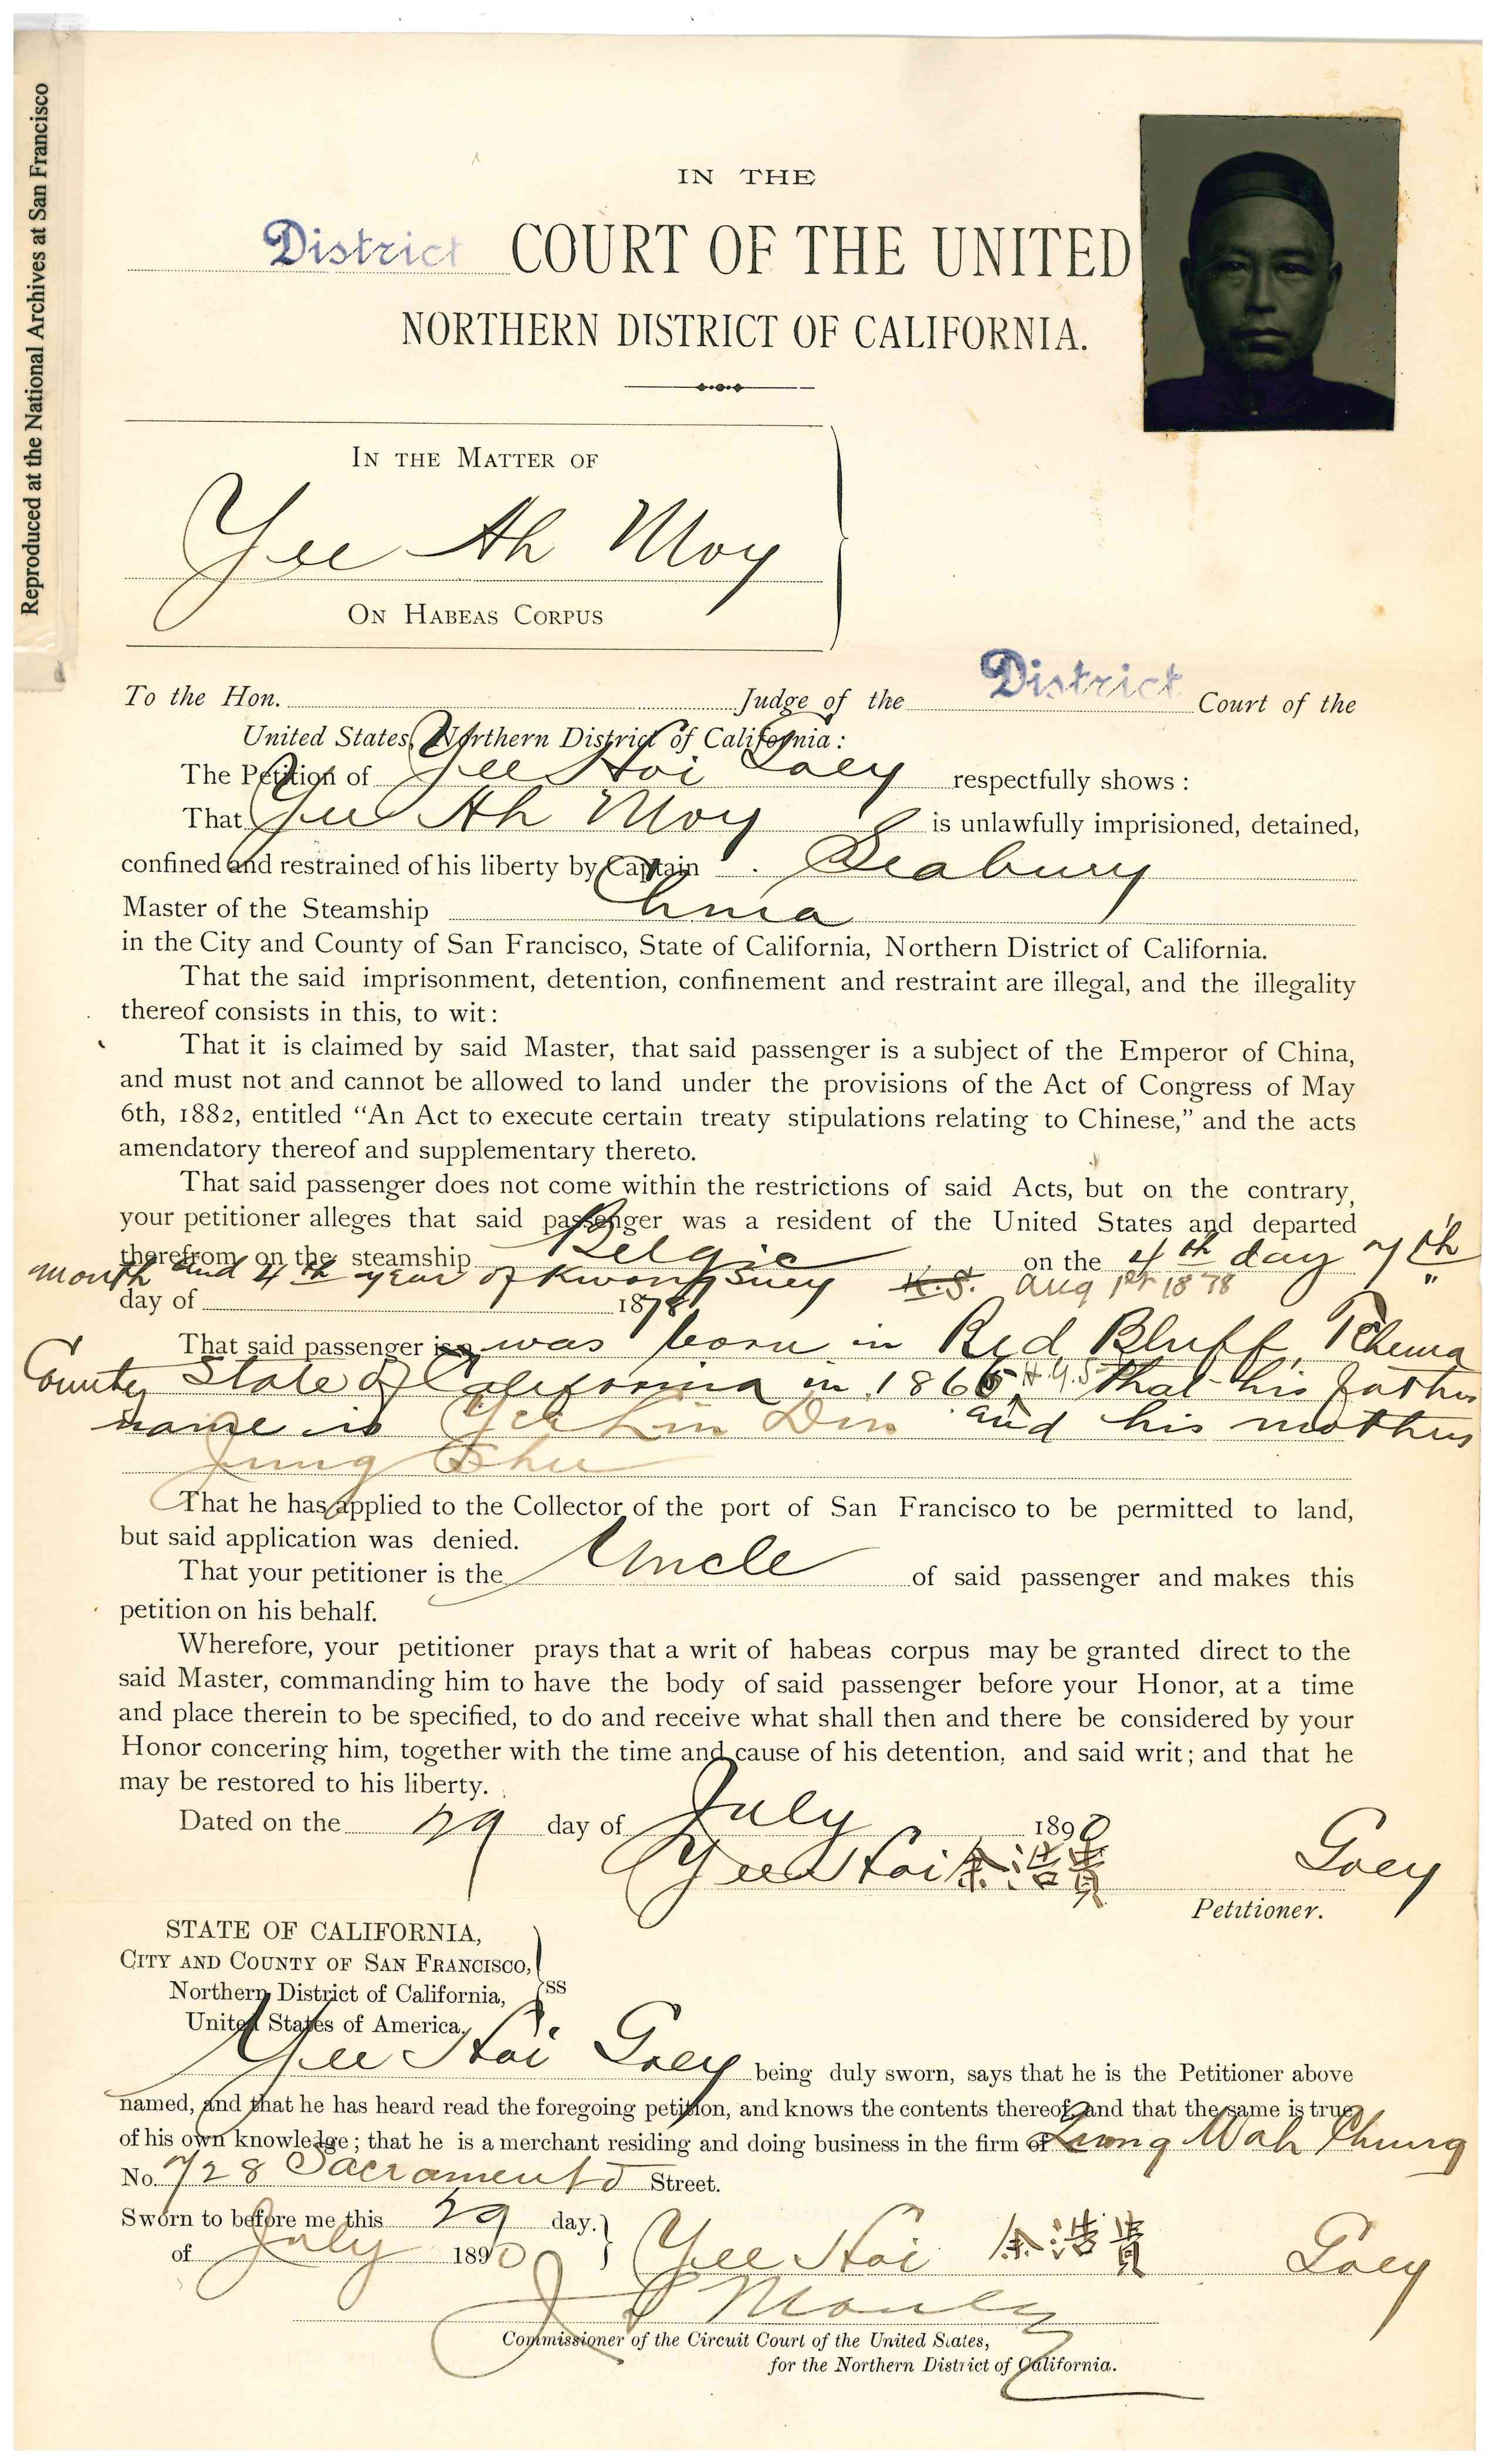 Reproduced at the National Archives at San Francisco
IN THE
District COURT OF THE UNITED
NORTHERN DISTRICT OF CALIFORNIA.
IN THE MATTER OF
Yee Ah Moy
ON HABEAS CORPUS
To the Hon. Judge of the District Court of the
United States, Northern District of California:
The Petition of Yee Hoi Goey respectfully shows:
That Yee Ah Moy is unlawfully imprisioned, detained,
confined and restrained of his liberty by Captain Seabury
Master of the Steamship China
in the City and County of San Francisco, State of California, Northern District of California.
That the said imprisonment, detention, confinement and restraint are illegal, and the illegality
thereof consists in this, to wit:
That it is claimed by said Master, that said passenger is a subject of the Emperor of China,
and must not and cannot be allowed to land under the provisions of the Act of Congress of May
6th, 1882, entitled “An Act to execute certain treaty stipulations relating to Chinese,” and the acts
amendatory thereof and supplementary thereto.
That said passenger does not come within the restrictions of said Acts, but on the contrary,
your petitioner alleges that said passenger was a resident of the United States and departed
therefrom on the steamship Belgic on the 4th day 7th
month and 4th year of Kwong Suey K.S. Aug 1st 1878 "
day of 1878
That said passenger is was born in Red Bluff, Tehema
County State of California in 1865 that his father
name is Yee Lin Din and his mothers
Jung Shee
That he has applied to the Collector of the port of San Francisco to be permitted to land,
but said application was denied.
That your petitioner is the Uncle of said passenger and makes this
petition on his behalf.
Wherefore, your petitioner prays that a writ of habeas corpus may be granted direct to the
said Master, commanding him to have the body of said passenger before your Honor, at a time
and place therein to be specified, to do and receive what shall then and there be considered by your
Honor concering him, together with the time and cause of his detention, and said writ; and that he
may be restored to his liberty.
Dated on the 29 day of July 1890
Yee Hoi 余浩貴 Goey
Petitioner.
STATE OF CALIFORNIA,
CITY AND COUNTY OF SAN FRANCISCO,
Northern District of California, ss
United States of America,
Yee Hoi Goey being duly sworn, says that he is the Petitioner above
named, and that he has heard read the foregoing petition, and knows the contents thereof, and that the same is true
of his own knowledge; that he is a merchant residing and doing business in the firm of Wah Chung
No. 728 Sacramento Street.
Sworn to before me this 29 day.
of July 1890 Yee Hoi 余浩貴 Goey
Manley
Commissioner of the Circuit Court of the United States,
for the Northern District of California.